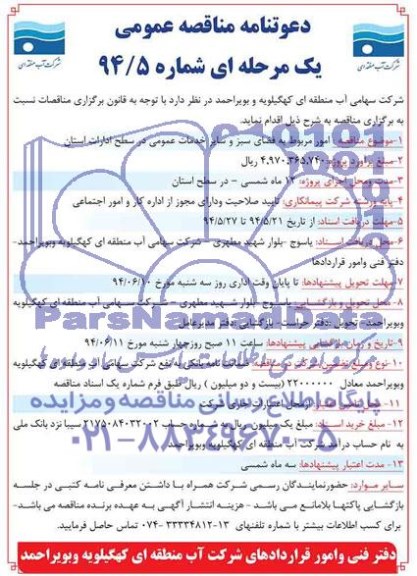 دعوتنامه مناقصه عمومی
یک مرحله ای شماره ۹۴/۵
شرکت آب منطقه ای
شرکت آب منطقه ای
شرکت سهامی آب منطقه ای کهگیلویه و بویراحمد در نظر دارد با توجه به قانون برگزاری مناقصات نسبت
به برگزاری مناقصه به شرح ذیل اقدام نماید.
۱-موضوع مناقصه: امور مربوط به فضای سبز و سایر خدمات عمومی در سطح ادارات استان
۲-مبلغ برآورد پروژه: ۴,۹۷۰,۳۶۵,۷۴۰ ریال
۳-مدت ومحل اجرای پروژه: ۱۲ ماه شمسی - در سطح استان
۴- پایه ورشته شرکت پیمانکاری: تایید صلاحیت ودارای مجوز از اداره کار و امور اجتماعی
۵-مهلت دریافت اسناد: از تاریخ ۹۴/۵/۲۱ تا ۹۴/۵/۲۷
۶-محل دریافت اسناد: یاسوج -بلوار شهید مطهری - شرکت سهامی آب منطقه ای کهگیلویه وبویراحمد-
دفتر فنی وامور قراردادها
۷-مهلت تحویل پیشنهادها: تا پایان وقت اداری روز سه شنبه مورخ ۹۴/۰۶/۱۰
۸-محل تحویل و بازگشایی: یاسوج -بلوار شهید مطهری - شرکت سهامی آب منطقه ای کهگیلویه
وبویراحمد- تحویل: دفتر حراست- بازگشایی: دفتر مدیرعامل
۹-تاریخ و زمان بازگشایی پیشنهادها: ساعت ۱۱ صبح روزچهار شنبه مورخ ۹۴/۰۶/۱۱
۱۰-نوع ومبلغ تضمین شرکت در مناقصه: ضمانت نامه بانکی به نفع شرکت سهامی آب منطقه ای کهگیلویه
وبویراحمد معادل ۲۲۰۰۰۰۰۰ (بیست و دو میلیون) ریال طبق فرم شماره یک اسناد مناقصه
۱۱- از محل اعتبارات جاری شرکت
۱۲-مبلغ خرید اسناد: مبلغ یک میلیون ریال به شماره حساب ۲۱۷۵۰۸۴۰۳۲۰۰۲ سیبا نزد بانک ملی
به نام حساب درآمد شرکت آب منطقه ای کهگیلویه وبویراحمد
۱۳-مدت اعتبار پیشنهادها: سه ماه شمسی
سایر موارد: حضورنمایندگان رسمی شرکت همراه با داشتن معرفی نامه کتبی در جلسه
بازگشایی پاکتها بلامانع می باشد- هزینه انتشار آگهی به عهده برنده مناقصه می باشد-
برای کسب اطلاعات بیشتر با شماره تلفنهای ۱۳-۳۳۳۳۴۸۱۲-۰۷۴ تماس حاصل فرمایید.
دفتر فنی وامور قراردادهای شرکت آب منطقه ای کهگیلویه وبویراحمد
ParsNamadData
پایگاه اطلاع رسانی مناقصه و مزایده
۰۲۱-۸۸۳۴۹۶۷۰-۵